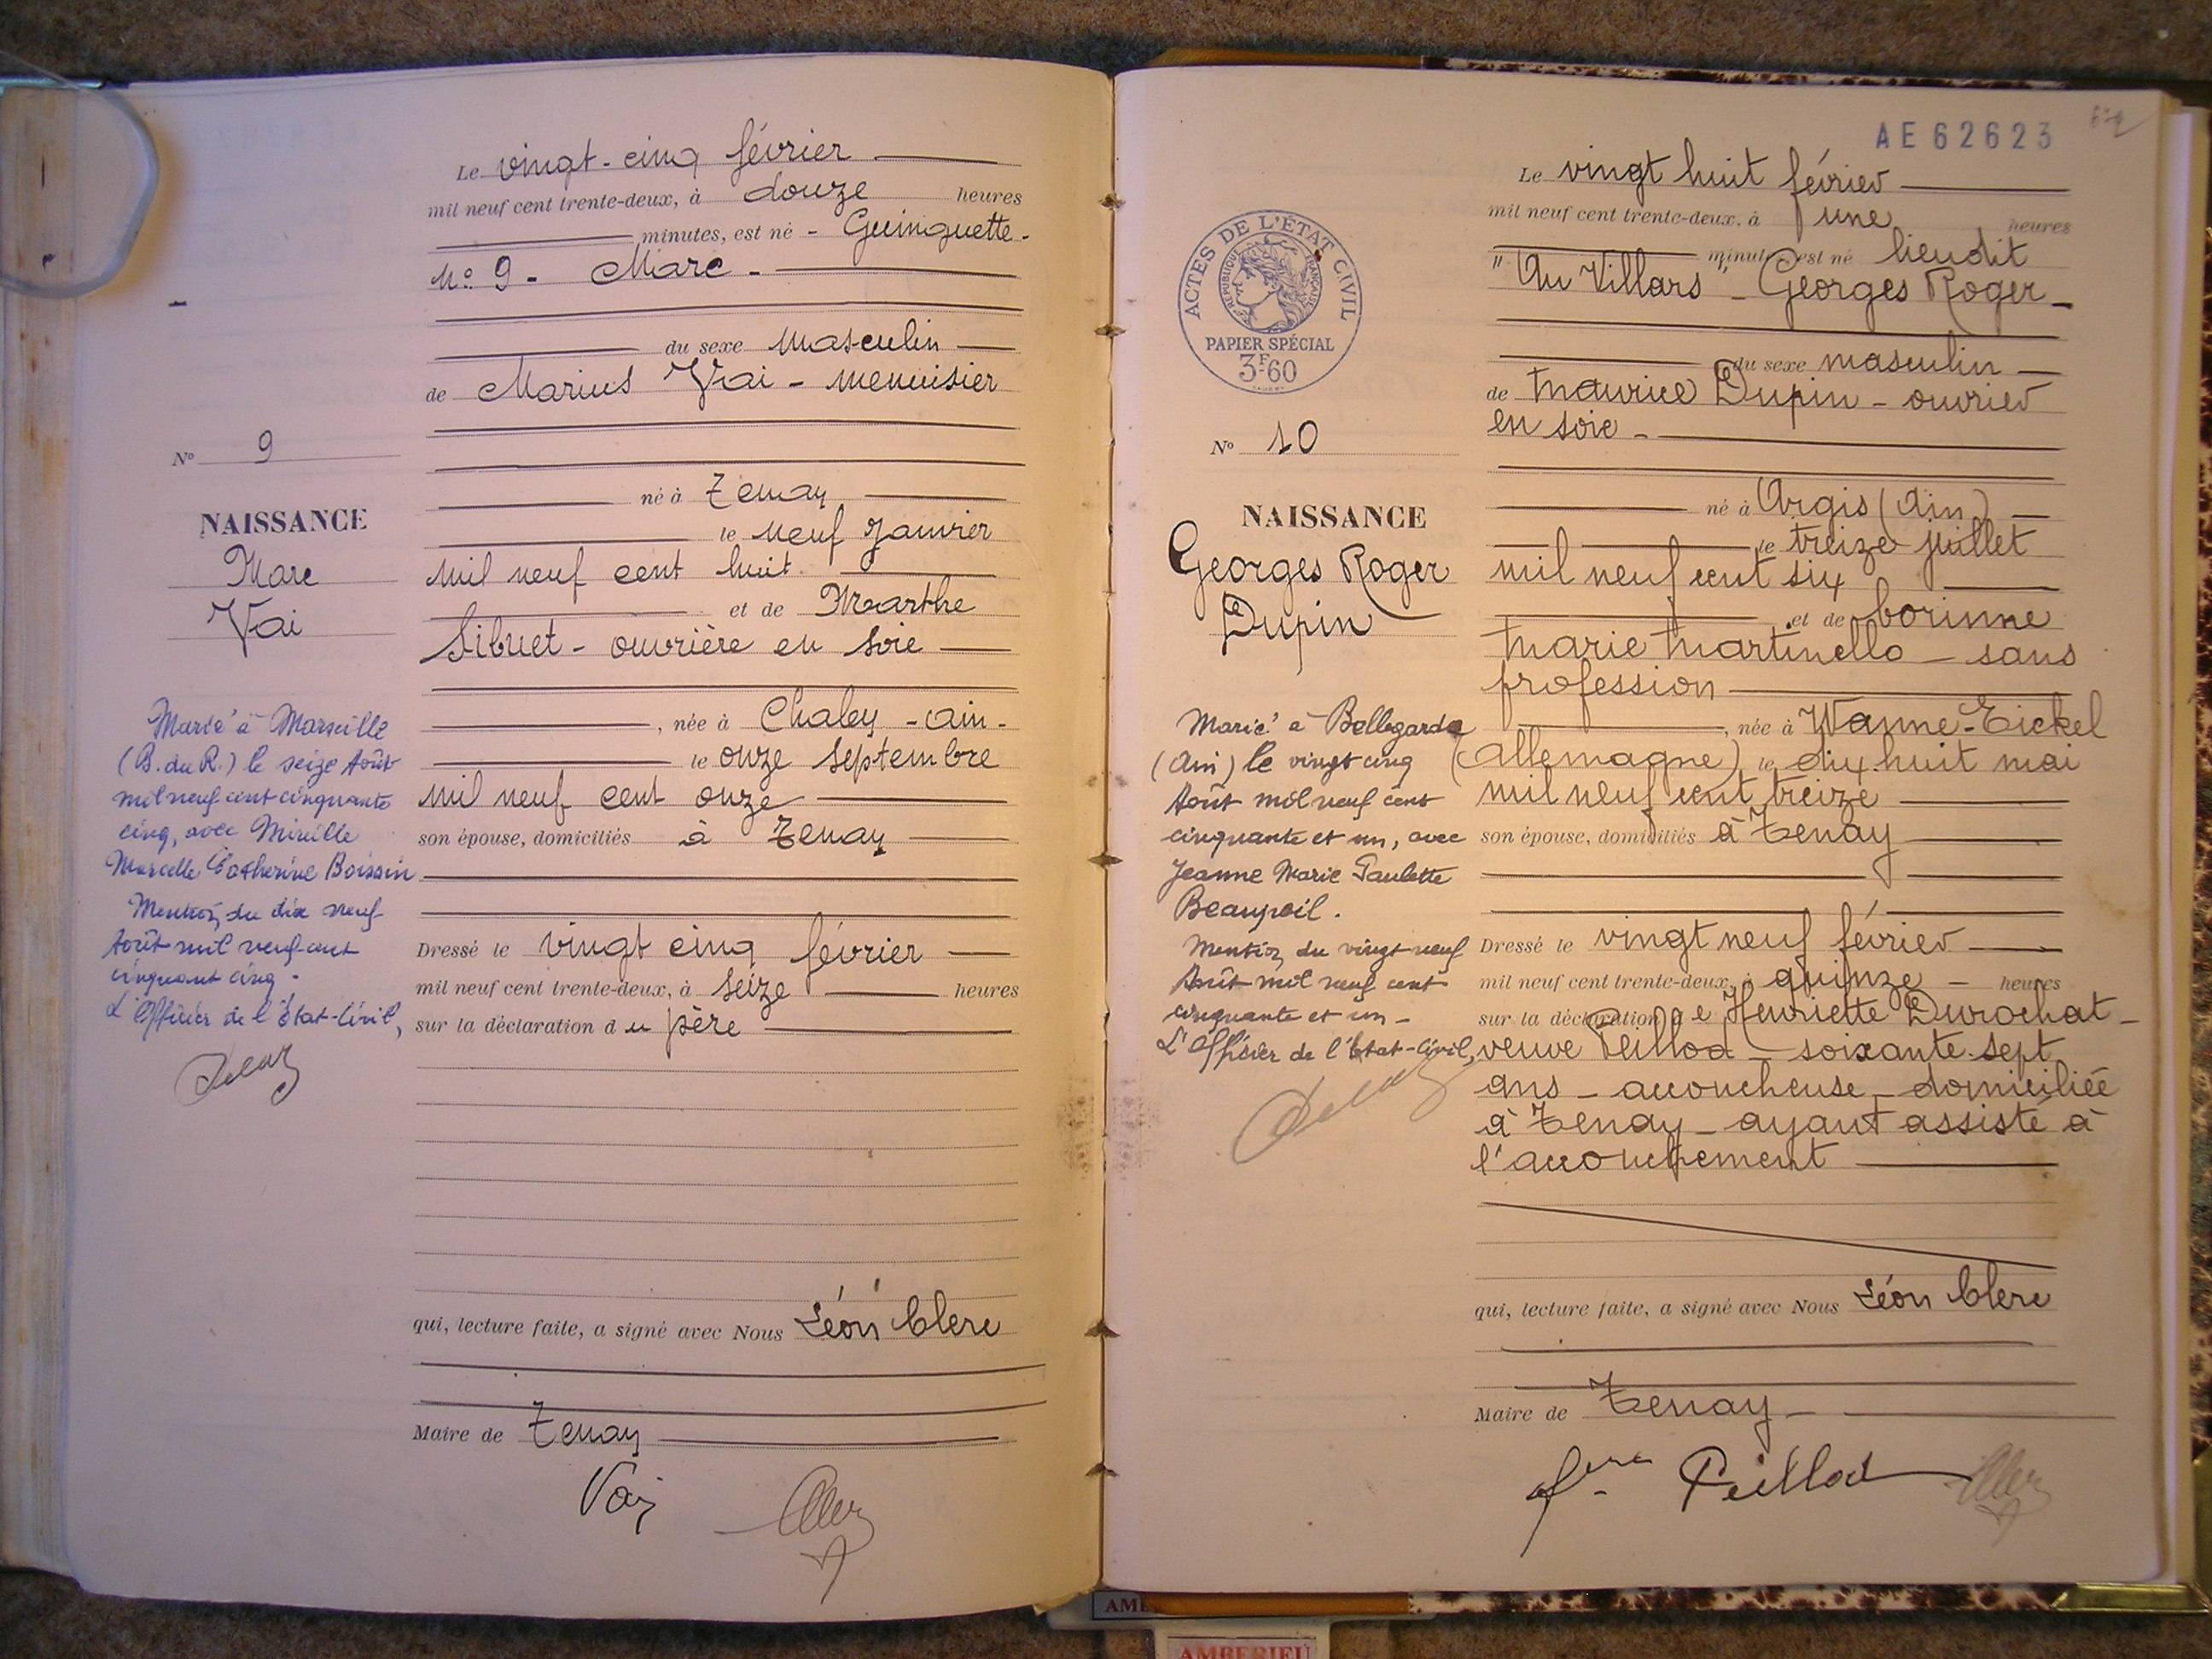 Le vingt-cinq février
mil neuf cent trente-deux, à douze heures
minutes, est né - Guinguette -
N° 9 - Marc -
du sexe masculin
de Marius Vai - menuisier
né à Tenay
le neuf Janvier
mil neuf cent huit.
et de Marthe
Sibuet - ouvrière en soie
, née à Chaley - Ain -
le onze septembre
mil neuf cent onze
son épouse, domiciliés à Tenay
Dressé le vingt cinq février
mil neuf cent trente-deux, à seize heures
sur la déclaration du père
qui, lecture faite, a signé avec Nous Léon Clerc
Maire de Tenay
Vai
N° 9
NAISSANCE
Marc
Vai
Marié à Marseille
(B. du R.) le seize Août
mil neuf cent cinquante
cinq, avec Mireille
Marcelle Catherine Boissin
Mention du dix neuf
Août mil neuf cent
cinquant cinq -
L'Officier de l'État-Civil,
AE 62623
Le vingt huit février
mil neuf cent trente-deux, à une heures
minutes, est né lieudit
"Au Villars" - Georges Roger -
du sexe masculin
de Maurice Dupin - ouvrier
en soie -
né à Argis (Ain)
le treize juillet
mil neuf cent six
et de Corinne
Marie Martinello - sans
profession
, née à Wanne-Eickel
(Allemagne) le dix-huit mai
mil neuf cent treize
son épouse, domiciliés à Tenay
Dressé le vingt neuf février
mil neuf cent trente-deux, à quinze heures
sur la déclaration de Henriette Durochat -
veuve Peillod - soixante-sept
ans - accoucheuse - domiciliée
à Tenay - ayant assisté à
l'accouchement
qui, lecture faite, a signé avec Nous Léon Clerc
Maire de Tenay -
Peillod
ACTES DE L'ÉTAT CIVIL
RÉPUBLIQUE FRANÇAISE
PAPIER SPÉCIAL
3F60
N° 10
NAISSANCE
Georges Roger
Dupin
Marié à Bellegarde
(Ain) le vingt cinq
Août mil neuf cent
cinquante et un, avec
Jeanne Marie Paulette
Beaupoil.
Mention du vingt neuf
Août mil neuf cent
cinquante et un -
L'Officier de l'État-Civil,
AMBERIEU